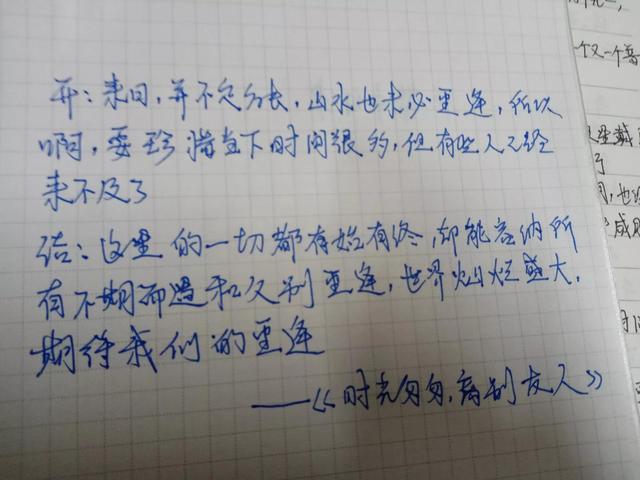 开：来日，并不欠分长，山水也未必重逢，所以
啊，要珍惜当下时间很多，但有些人已经
来不及了
结：这里的一切都有始有终，却能容纳所
有不期而遇和久别重逢，世界灿烂盛大，
期待我们的重逢
——《时光匆匆，离别友人》
个又一个音
也